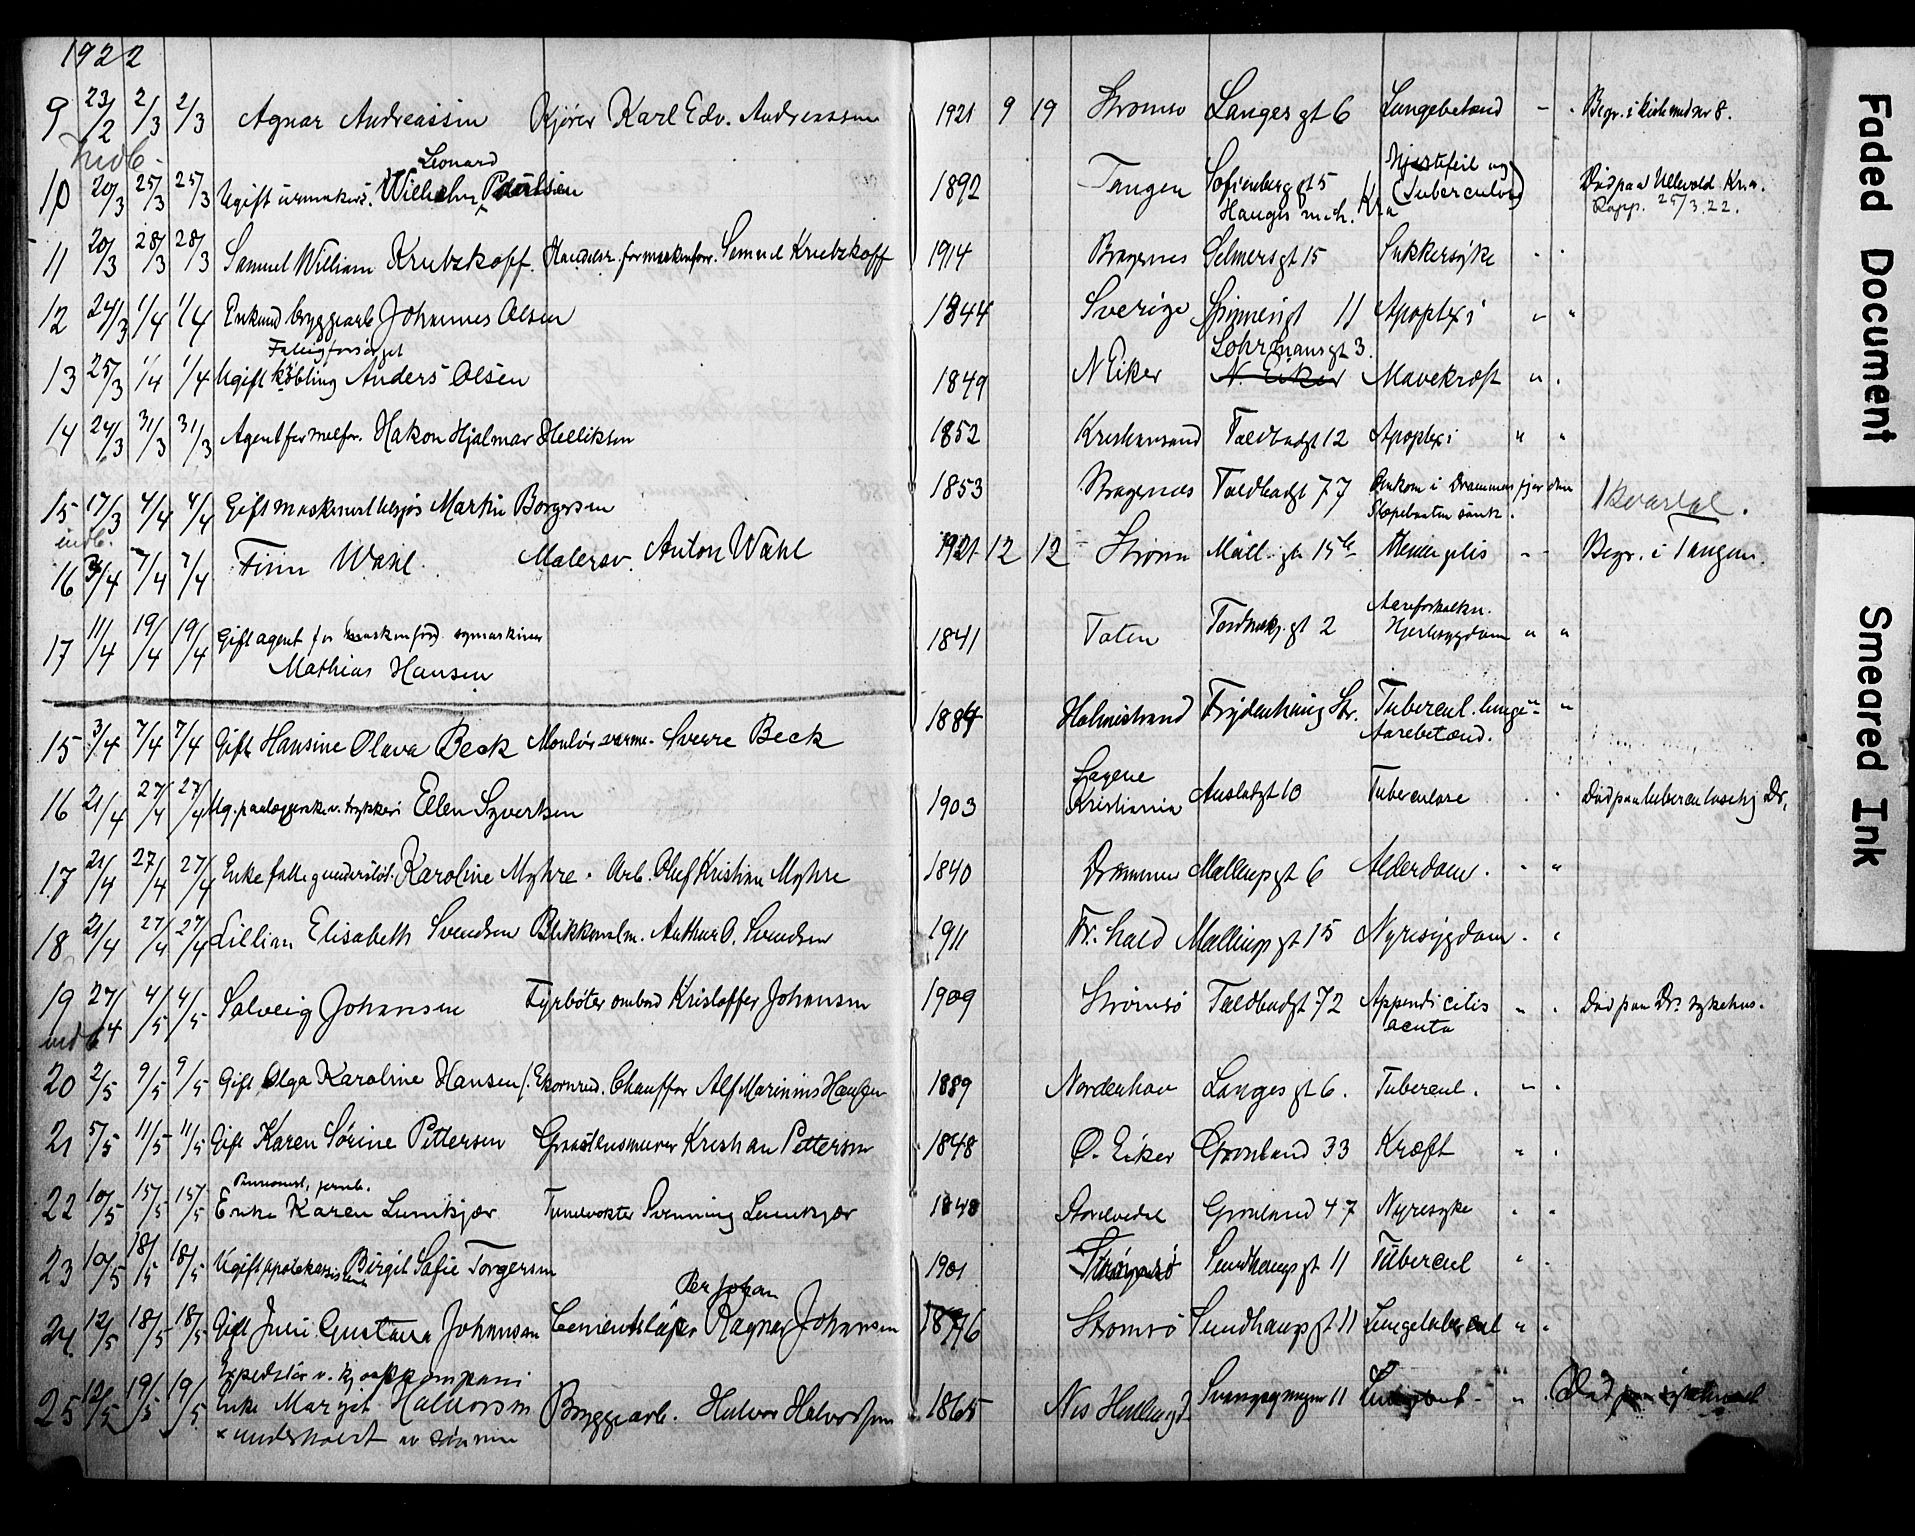 1922
9 23/2 2/3 2/3 Agnar Andreassen Kjører Karl Edv. Andreassen 1921 9 19 Strømsø Langes gt 6 Lungebetænd - . Begr. i kirk med nr 8.
indb.
Leonard
10 20/3 25/3 25/3 Ugift urmakers. Wilhelm 1892 Tangen Sofienberggt 5 Hjertefeil og (Tuberculose) Død paa Ullevold. Kra.
Rapp. 25/3.22.
11 20/3 28/3 28/3 Samuel William Krubzkoff. Samuel Krubzkoff 1914 Bragernes Selmersgt 15 Sukkersyke
12 24/3 1/4 1/4 Enkemd bryggearb Johannes Olsen 1844 Sverige 11 Apoplexi " "
Fattigforsørget
13 25/3 1/4 1/4 Ugift Anders Olsen 1849 N Eiker Lohrmansgt 3. N. Eiker Mavekræft " .
14 24/3 31/3 31/3 Agent for melfor. Hakon Hjalmar Helliksen 1852 Kristiansand Toldbodgt 12 Apoplexi " "
15 17/3 4/4 4/4 Gift maskinist Martin Borgersen 1853 Bragernes Toldbodgt 77 Omkom i Drammensfjorden
Slæpebaaten sank.
1 kvartal.
indb.
16 3/4 7/4 7/4 Finn Wahl. Malersv. Anton Wahl 1921 12 12 Strøms 15 Begr. i Tangen.
17 11/4 19/4 19/4 Gift agent for symaskiner
Mathias Hansen 1841 Toten 2 Aareforkalkn.
Hjertesygdom " "
15 3/4 7/4 7/4 Gift Hansine Olava Beck Montør varme. Sverre Beck 1884 Holmestrand Frydenhaug Str. Tubercul. lunge
Aarebetænd.
16 21/4 27/4 27/4 Ug. paalæggerske v. trykkeri Ellen Syversen 1903 Kristiania 10 Tuberculose . . Død paa tuberculosehj Dr.
17 21/4 27/4 27/4 Enke fattigunderstøt. Karoline Myhre. Arb. Olef Kristian Myhre 1840 Drammen Møllerupgt 6 Alderdom . . "
18 21/4 27/4 27/4 Lillian Elisabeth Svendsen Blikkenslm. Arthur O. Svendsen 1911 Fr. hald Møllerupgt 15 Nyresygdom . .
19 27/4 4/5 4/5 Solveig Johansen Fyrbøter ombord Kristoffer Johansen 1909 Strømsø Toldbodgt 72 Appendicitis
acuta " . Død paa Drs sykehus.
indb
20 2/5 9/5 9/5 Gift Olga Karoline Hansen f. Ekornrud. Chauffør Alf Marinius Hansen 1889 Norderhov Langes gt 6. Tubercul. " .
21 5/5 11/5 11/5 Gift Karen Sørine Pettersen Kristian Pettersen 1848 Ø. Eiker Grønland 33 Kræft " .
Pensionist, jernb.
22 10/5 15/5 15/5 Enke Karen Lumkjær Svenning Lumkjær 1848 Grønland 47 Nyresyke . .
23 10/5 18/5 18/5 Ugift apotekassistent Birgit Sofie Torgersen 1901 Strømsø Sundhaugsgt 11 Tubercul " .
Per Johan
24. 12/5 18/5 18/5 Gift Juli Gustava Johansen Ragnar Johansen 1896 Strømsø Sundhaugsgt 11 Lungetubercul " .
25 12/5 19/5 19/5 Enke Margit Halvorsen Bryggearb. Halvor Halvorsen 1865 Nes Hallingd. 11 " Død
x underholdt av sønnen
Faded Document
Smeared Ink